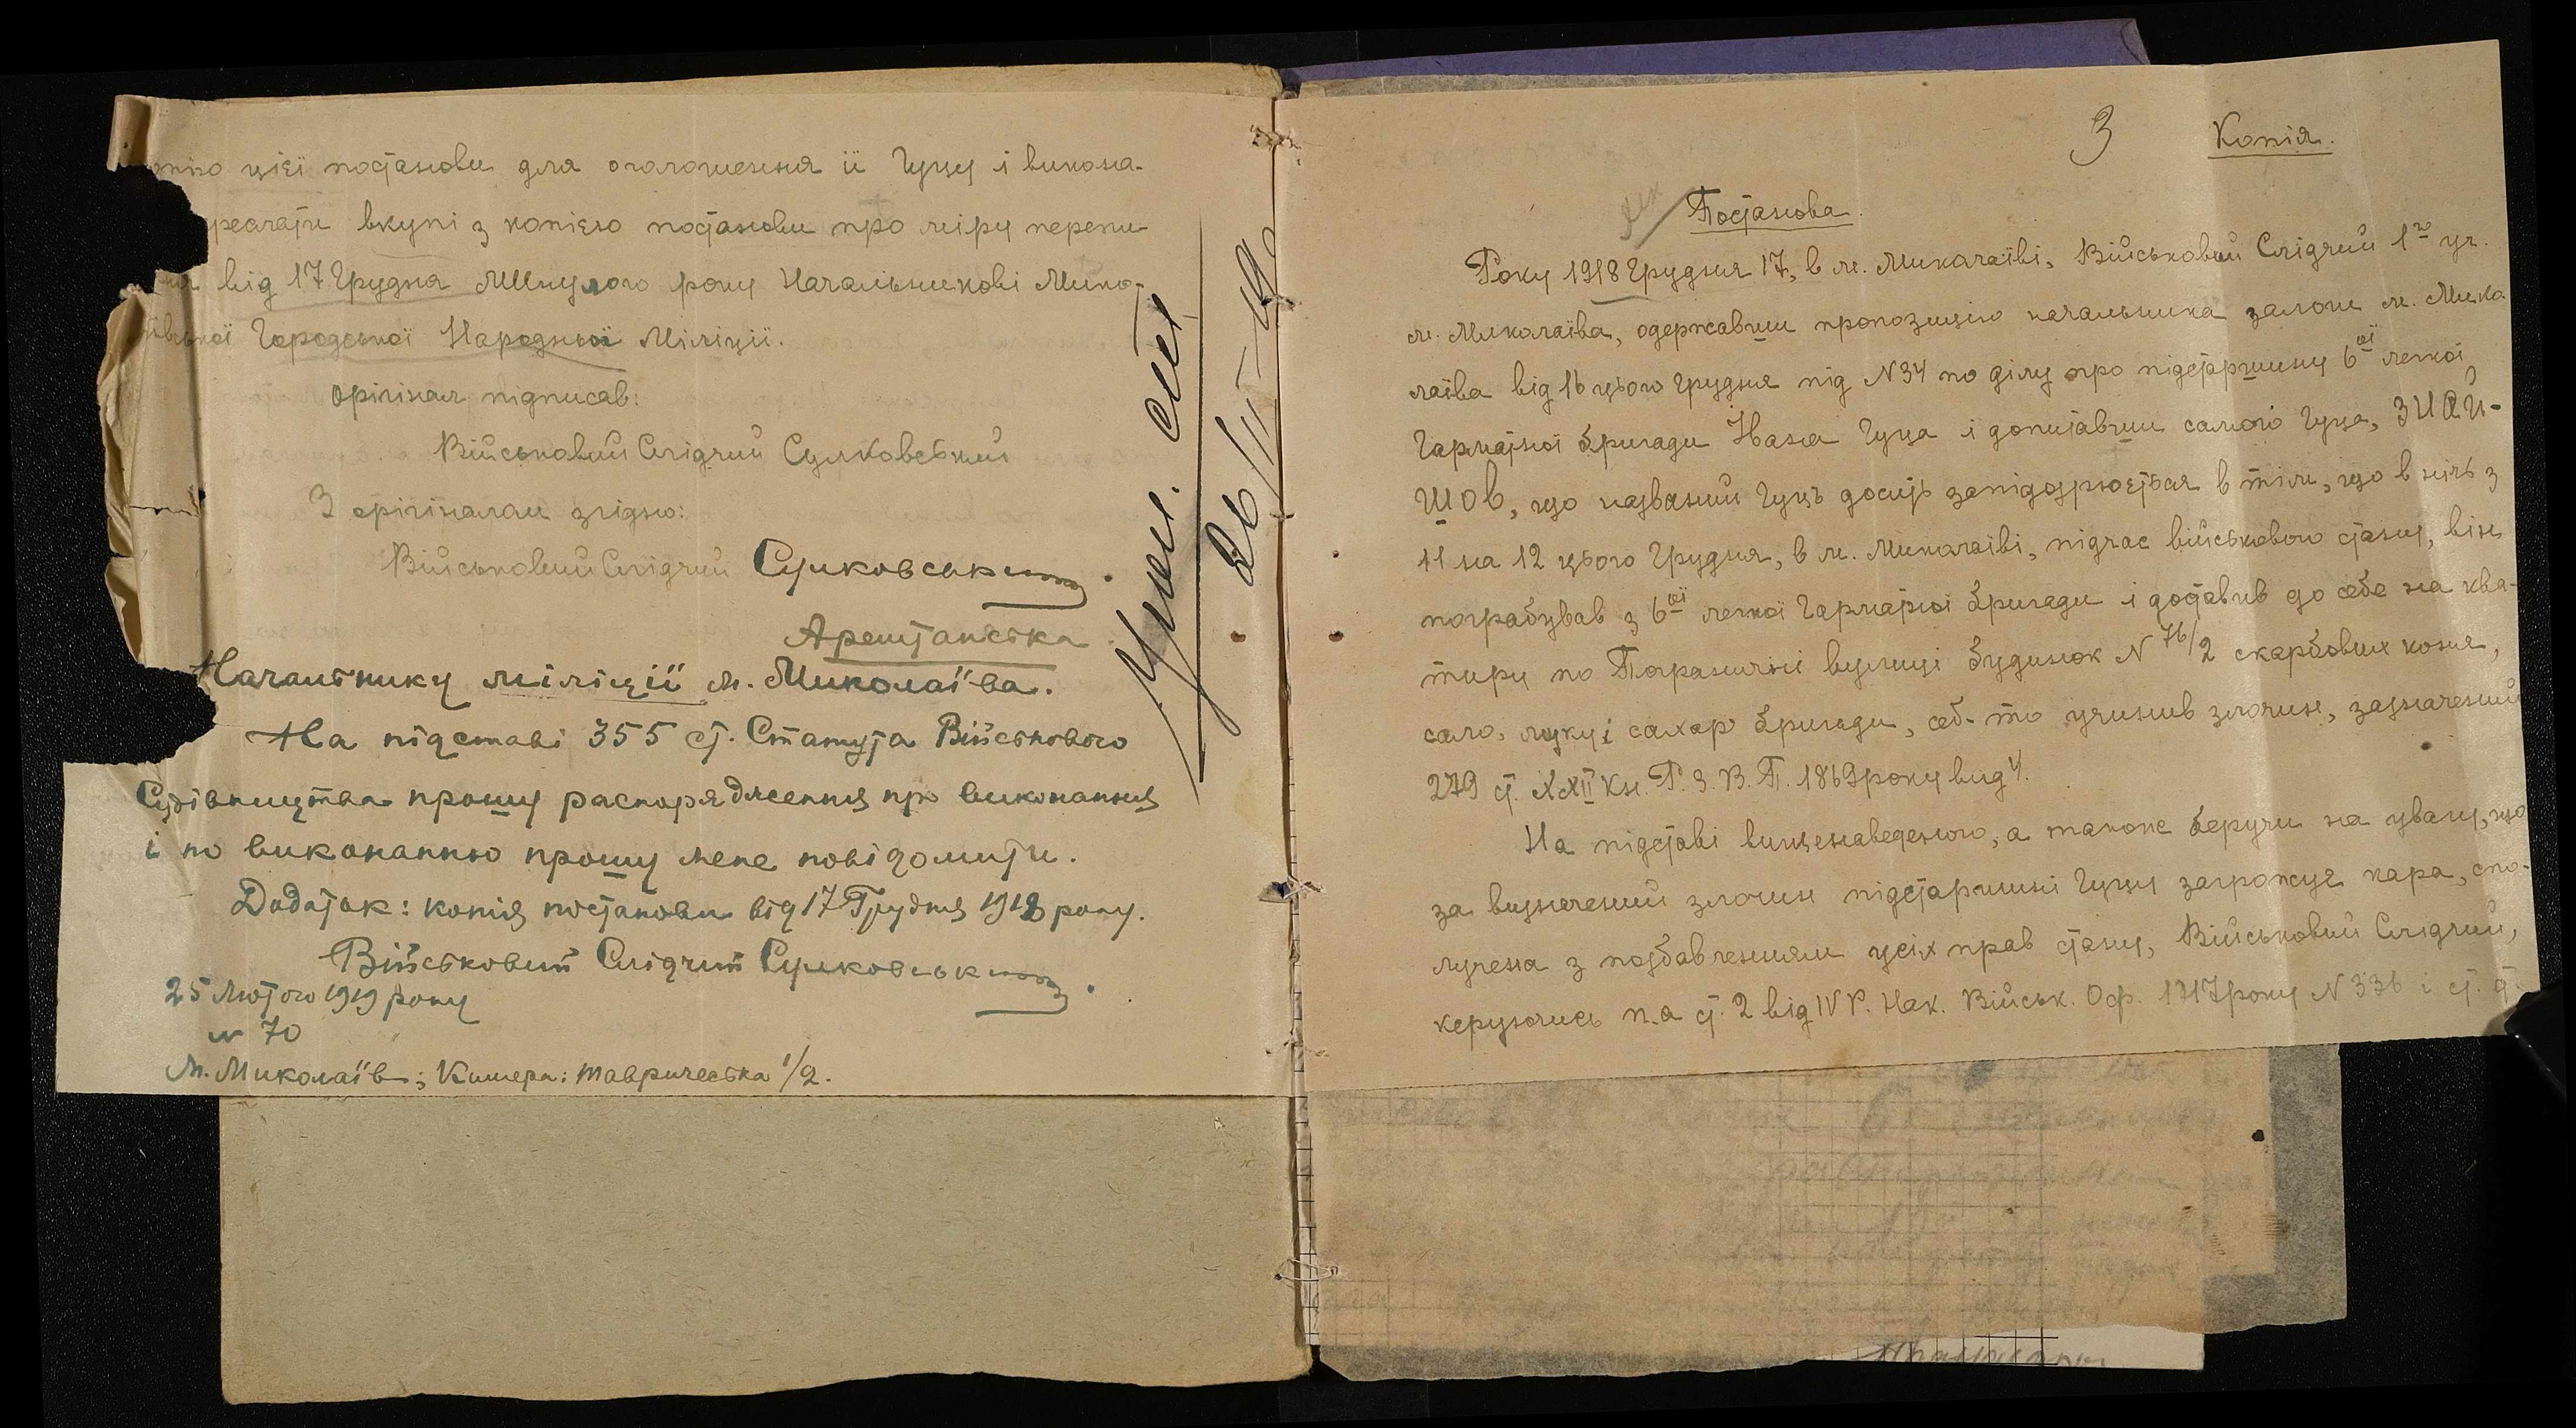 цієї постанови для оголошення її Гуцу і викона-
вкупі з копією постанови про міру перепи-
від 17 Грудня Минулого року Начальникові Мико-
Городської Народньої Міліції.
Оріґінал підписав:
Військовий Слідчий Сулковський
З оріґіналом згідно:
Військовий Слідчий Сулковський.
Арештанська
Начальнику міліції м. Миколаїва.
На підставі 355 ст. Статута Військового
Судівництва прошу распорядження про виконання
і по виконанню прошу мене повідомити.
Додаток: копія постанови від 17 Грудня 1918 року.
Військовий Слідчий Сулковський.
25 Лютого 1919 року
№ 70
м. Миколаїв; Камера: Тавричеська 1/2.
26/II-19
3 Копія.
Постанова.
Року 1918 Грудня 17, в м. Миколаїві, Військовий Слідчий 1го уч.
м. Миколаїва, одержавши пропозицію начальника залоги м. Мико-
лаїва від 16 цього Грудня під N 34 по ділу про підстаршину 6ої легкої
Гарматної бригади Гуца і допитавши самого Гуца, ЗНАЙ-
ШОВ, що названий Гуць досить запідозрюється в тім, що в ніч з
11 на 12 цього Грудня, в м. Миколаїві, підчас військового стану, він
пограбував з 6ої легкої Гарматної бригади і доставив до себе на ква-
тиру по Пограничній вулиці будинок N 76/2 скарбових коня,
сало, муку і сахар бригади, себ-то учинив злочин, зазначений
279 ст. XXII Кн. Р. З. В. П. 1869 року вид 4.
На підставі вищенаведеного, а також беручи на увагу, що
за визначений злочин підстаршині Гуцу загрожує кара, спо-
лучена з позбавленням усіх прав стану, Військовий Слідчий,
керуючись п. а ст. 2 від IV Р. Нак. Військ. Оф. 1917 року N 336 і ст. ст.